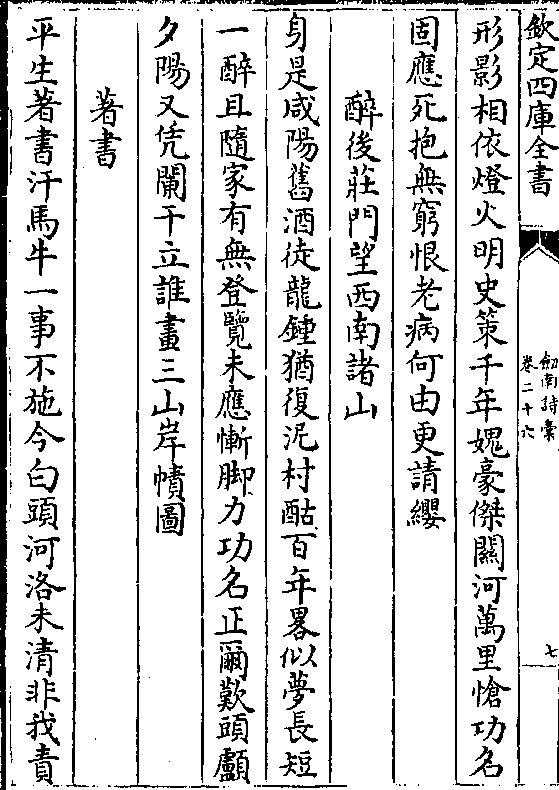 欽定四庫全書
劒南詩稾
卷二十六
七
形影相依燈火明史策千年媿豪傑關河萬里愴功名
固應死抱無窮恨老病何由更請纓
醉後莊門望西南諸山
身是咸陽舊酒徒龍鍾猶復泥村酤百年畧似夢長短
一醉且隨家有無登覽未應慚脚力功名正爾歎頭顱
夕陽又凭闌干立誰畫三山岸幘圖
著書
平生著書汗馬牛一事不施今白頭河洛未清非我責